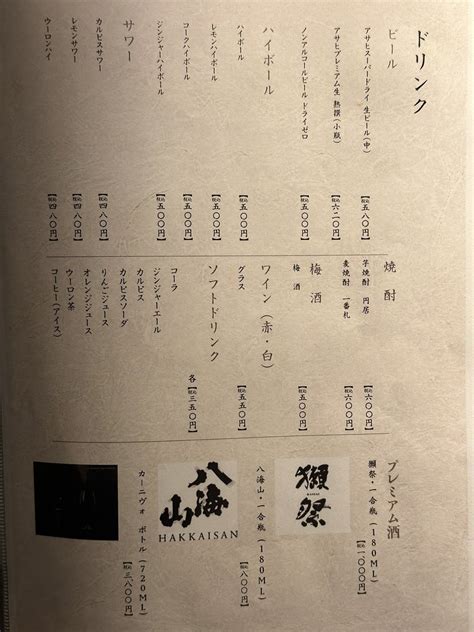 ドリンク
ビール
アサヒスーパードライ 生ビール(中) 【税込】五八〇円
アサヒプレミアム生 熟撰(小瓶) 【税込】六二〇円
ノンアルコールビール ドライゼロ 【税込】五〇〇円
ハイボール
ハイボール 【税込】五〇〇円
レモンハイボール 【税込】五〇〇円
コークハイボール 【税込】五〇〇円
ジンジャーハイボール 【税込】五〇〇円
サワー
カルピスサワー 【税込】四八〇円
レモンサワー 【税込】四八〇円
ウーロンハイ 【税込】四八〇円
焼酎
芋焼酎 円居 【税込】六〇〇円
麦焼酎 一番札 【税込】六〇〇円
梅酒
梅酒 【税込】五〇〇円
ワイン(赤・白)
グラス 【税込】五五〇円
ソフトドリンク
各【税込】三五〇円
コーラ
ジンジャーエール
カルピス
カルピスソーダ
りんごジュース
オレンジジュース
ウーロン茶
コーヒー(アイス)
プレミアム酒
獺祭・一合瓶(180ML) 【税込】一、〇〇〇円
獺祭
八海山・一合瓶(180ML) 【税込】八〇〇円
八海山
HAKKAISAN
カーニヴォ ボトル(720ML) 【税込】三、八〇〇円